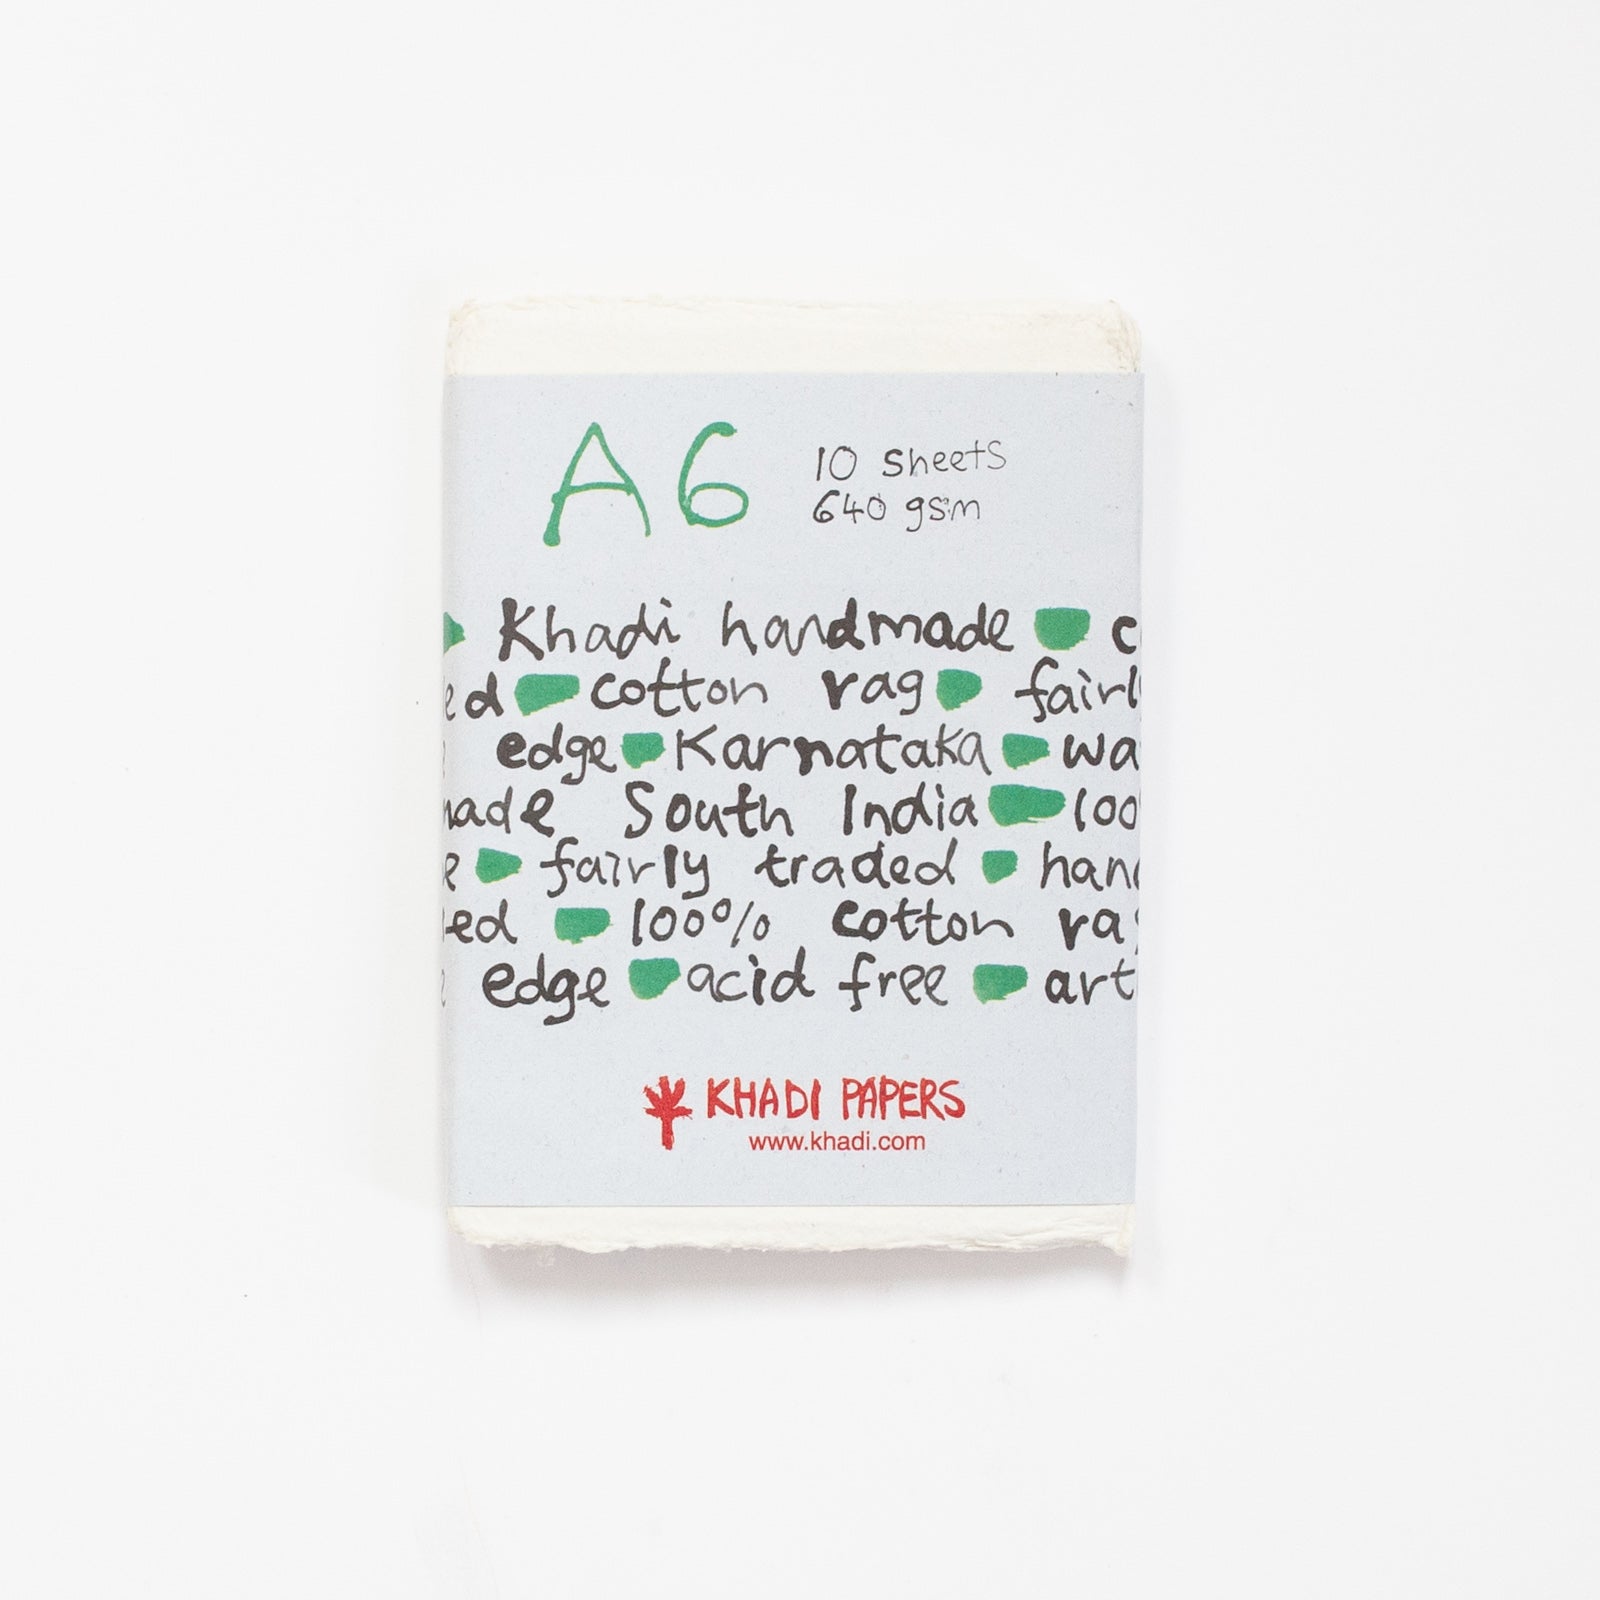 A6
10 sheets
640 gsm
Khadi handmade
cotton rag
edge Karnataka
South India 100
fairly traded
100% cotton
edge acid free art
KHADI PAPERS
www.khadi.com